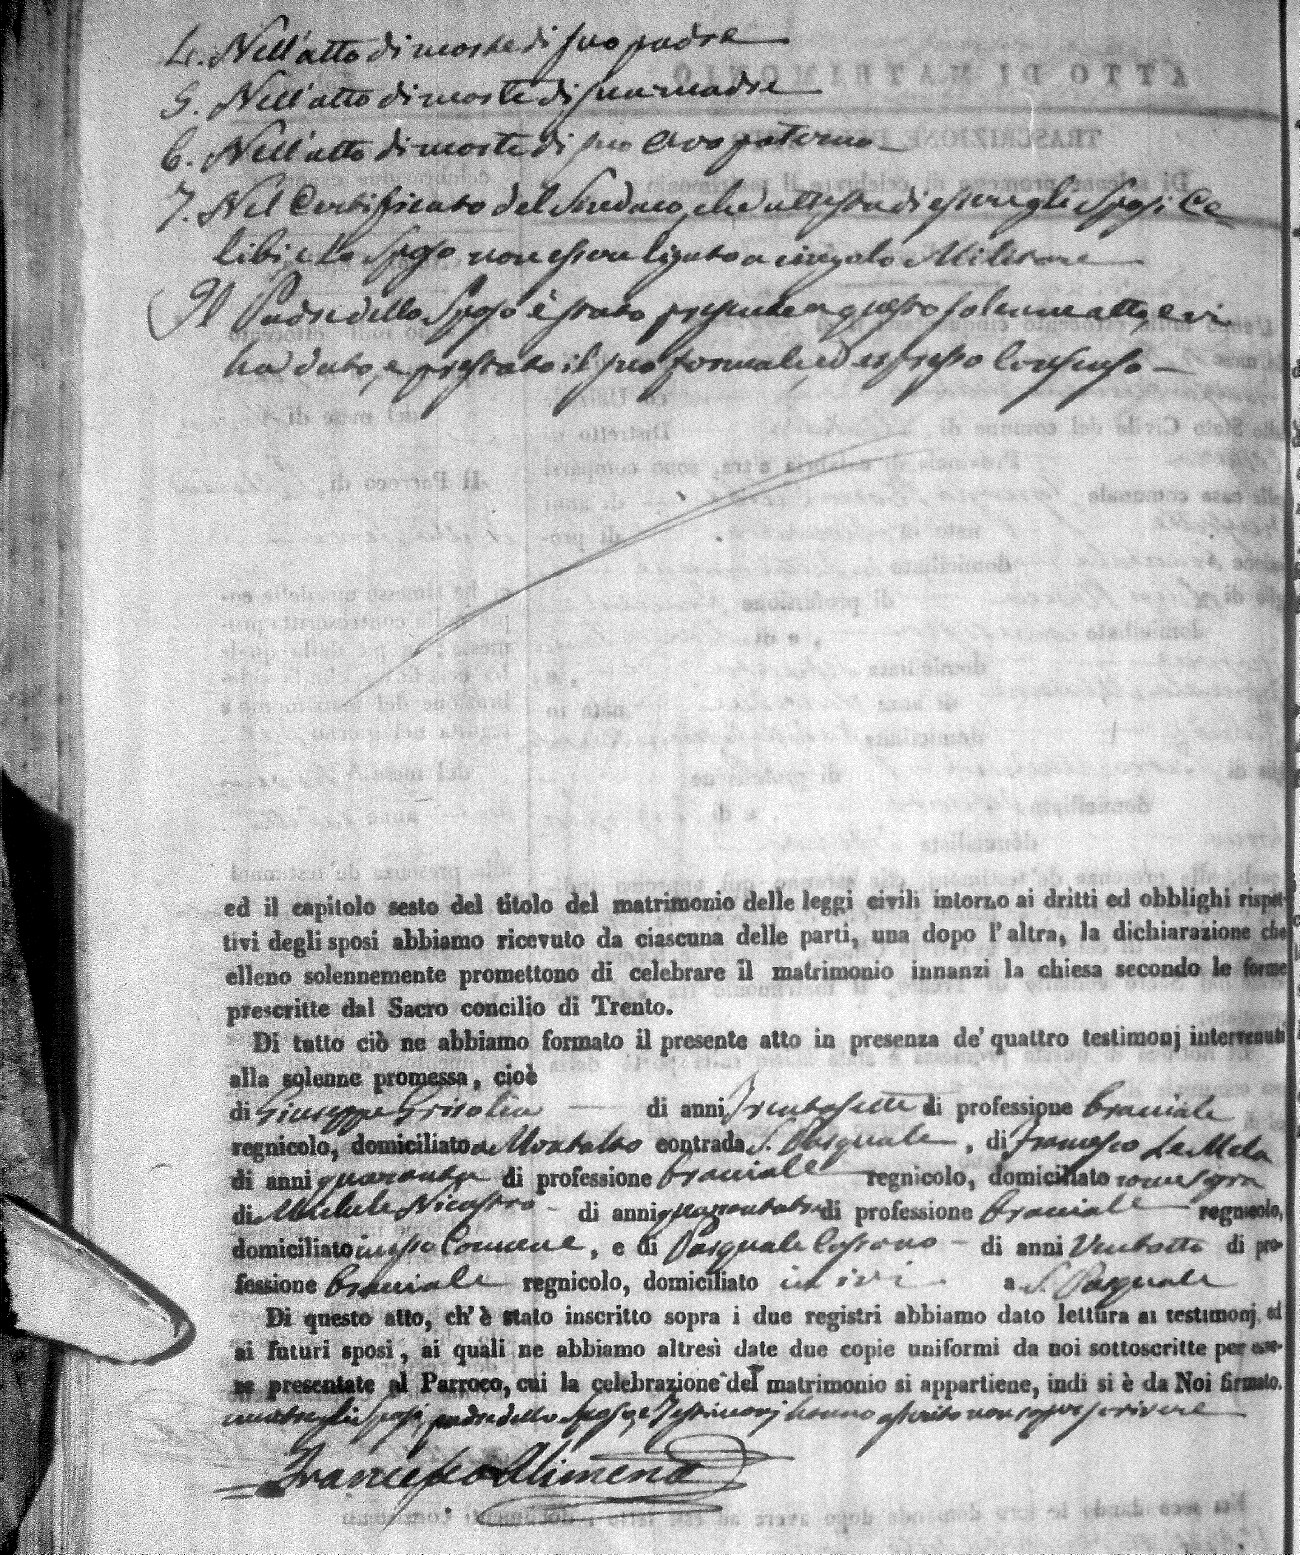 4. Nell'atto di morte di suo padre
5. Nell'atto di morte di sua madre
6. Nell'atto di morte di suo avo paterno
7. Nel Certificato del Sindaco, che attesta di essere gli Sposi Ce
libi, e lo Sposo non essere ligato a cingolo Militare
Il Padre dello Sposo è stato presente a questo solenne atto, e vi
ha dato, e prestato il suo formale ed espresso Consenso
ed il capitolo sesto del titolo del matrimonio delle leggi civili intorno ai dritti ed obblighi rispet-
tivi degli sposi abbiamo ricevuto da ciascuna delle parti, una dopo l'altra, la dichiarazione che
elleno solennemente promettono di celebrare il matrimonio innanzi la chiesa secondo le forme
prescritte dal Sacro concilio di Trento.
Di tutto ciò ne abbiamo formato il presente atto in presenza de' quattro testimonj intervenuti
alla solenne promessa, cioè
di Giuseppe Grisolia di anni Trentasette di professione bracciale
regnicolo, domiciliato a Montalto contrada S. Pasquale, di Francesco La Mela
di anni quaranta di professione bracciale regnicolo, domiciliato come sopra
di Michele Nicastro di anni quarantatre di professione bracciale regnicolo,
domiciliato in esso Comune, e di Pasquale di anni Ventotto di pro-
fessione bracciale regnicolo, domiciliato in ivi a S. Pasquale
Di questo atto, ch'è stato inscritto sopra i due registri abbiamo dato lettura ai testimonj, ed
ai futuri sposi, ai quali ne abbiamo altresì date due copie uniformi da noi sottoscritte per esse-
re presentate al Parroco, cui la celebrazione del matrimonio si appartiene, indi si è da Noi firmato.
mentre gli Sposi, padre dello Sposo, e Testimonj hanno asserito non sapere scrivere
Francesco Alimena